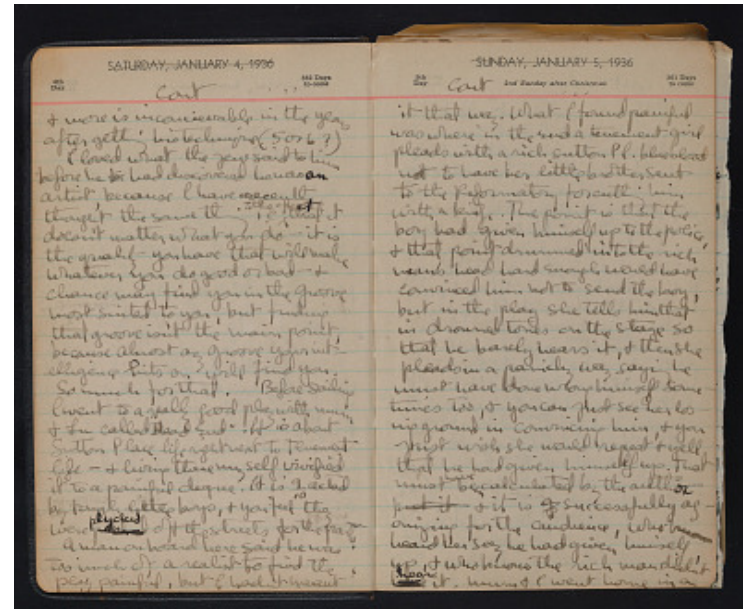 SATURDAY, JANUARY 4, 1936
4th Day
362 Days to come
Cont
& more is inconceivable in the year
after getting his technique (5 or 6?)
I loved what the Jew said to him
before he had discovered he was an
artist, because I have recently
thought the same thing
doesn't matter what you do — it is
the quality you have that will make
whatever you do good or bad — &
chance may find you in the groove
most suited to you, but finding
that groove isn't the main point,
because almost any groove your int-
elligence hits on will find you.
So much for that. Before sailing
I went to a really good play with mum
called Dead End. It is about
Sutton Place life right next to Tenement
life — & living there myself vivified
it to a painful degree. It is acted
by tough little boys, & you feel they
were plucked off the streets for the play
A man on board here said he was
too much of a realist to find the
play painful, but I had
SUNDAY, JANUARY 5, 1936
5th Day
2nd Sunday after Christmas
361 Days to come
Cont
it that way. What I found painful
was where in the end a tenement girl
pleads with a rich Sutton Pl. blueblood
not to have her little brother sent
to the reformatory for cutting him
with a knife. The point is that the
boy had given himself up to the police,
& that point drummed into the rich
man's head hard enough would have
convinced him not to send the boy,
but in the play she tells him that
in drowned tones on the stage so
that he barely hears it, & then she
pleads in a panicky way saying he
must have done wrong himself some-
times too, & you can just see her los-
ing ground in convincing him, & you
just wish she would repeat & yell
that he had given himself up. That
must be calculated by the author
& it is successfully ag-
onizing for the audience, who
heard her say he had given himself
up, & who know the rich man didn't
hear it. Mum & I went home in a